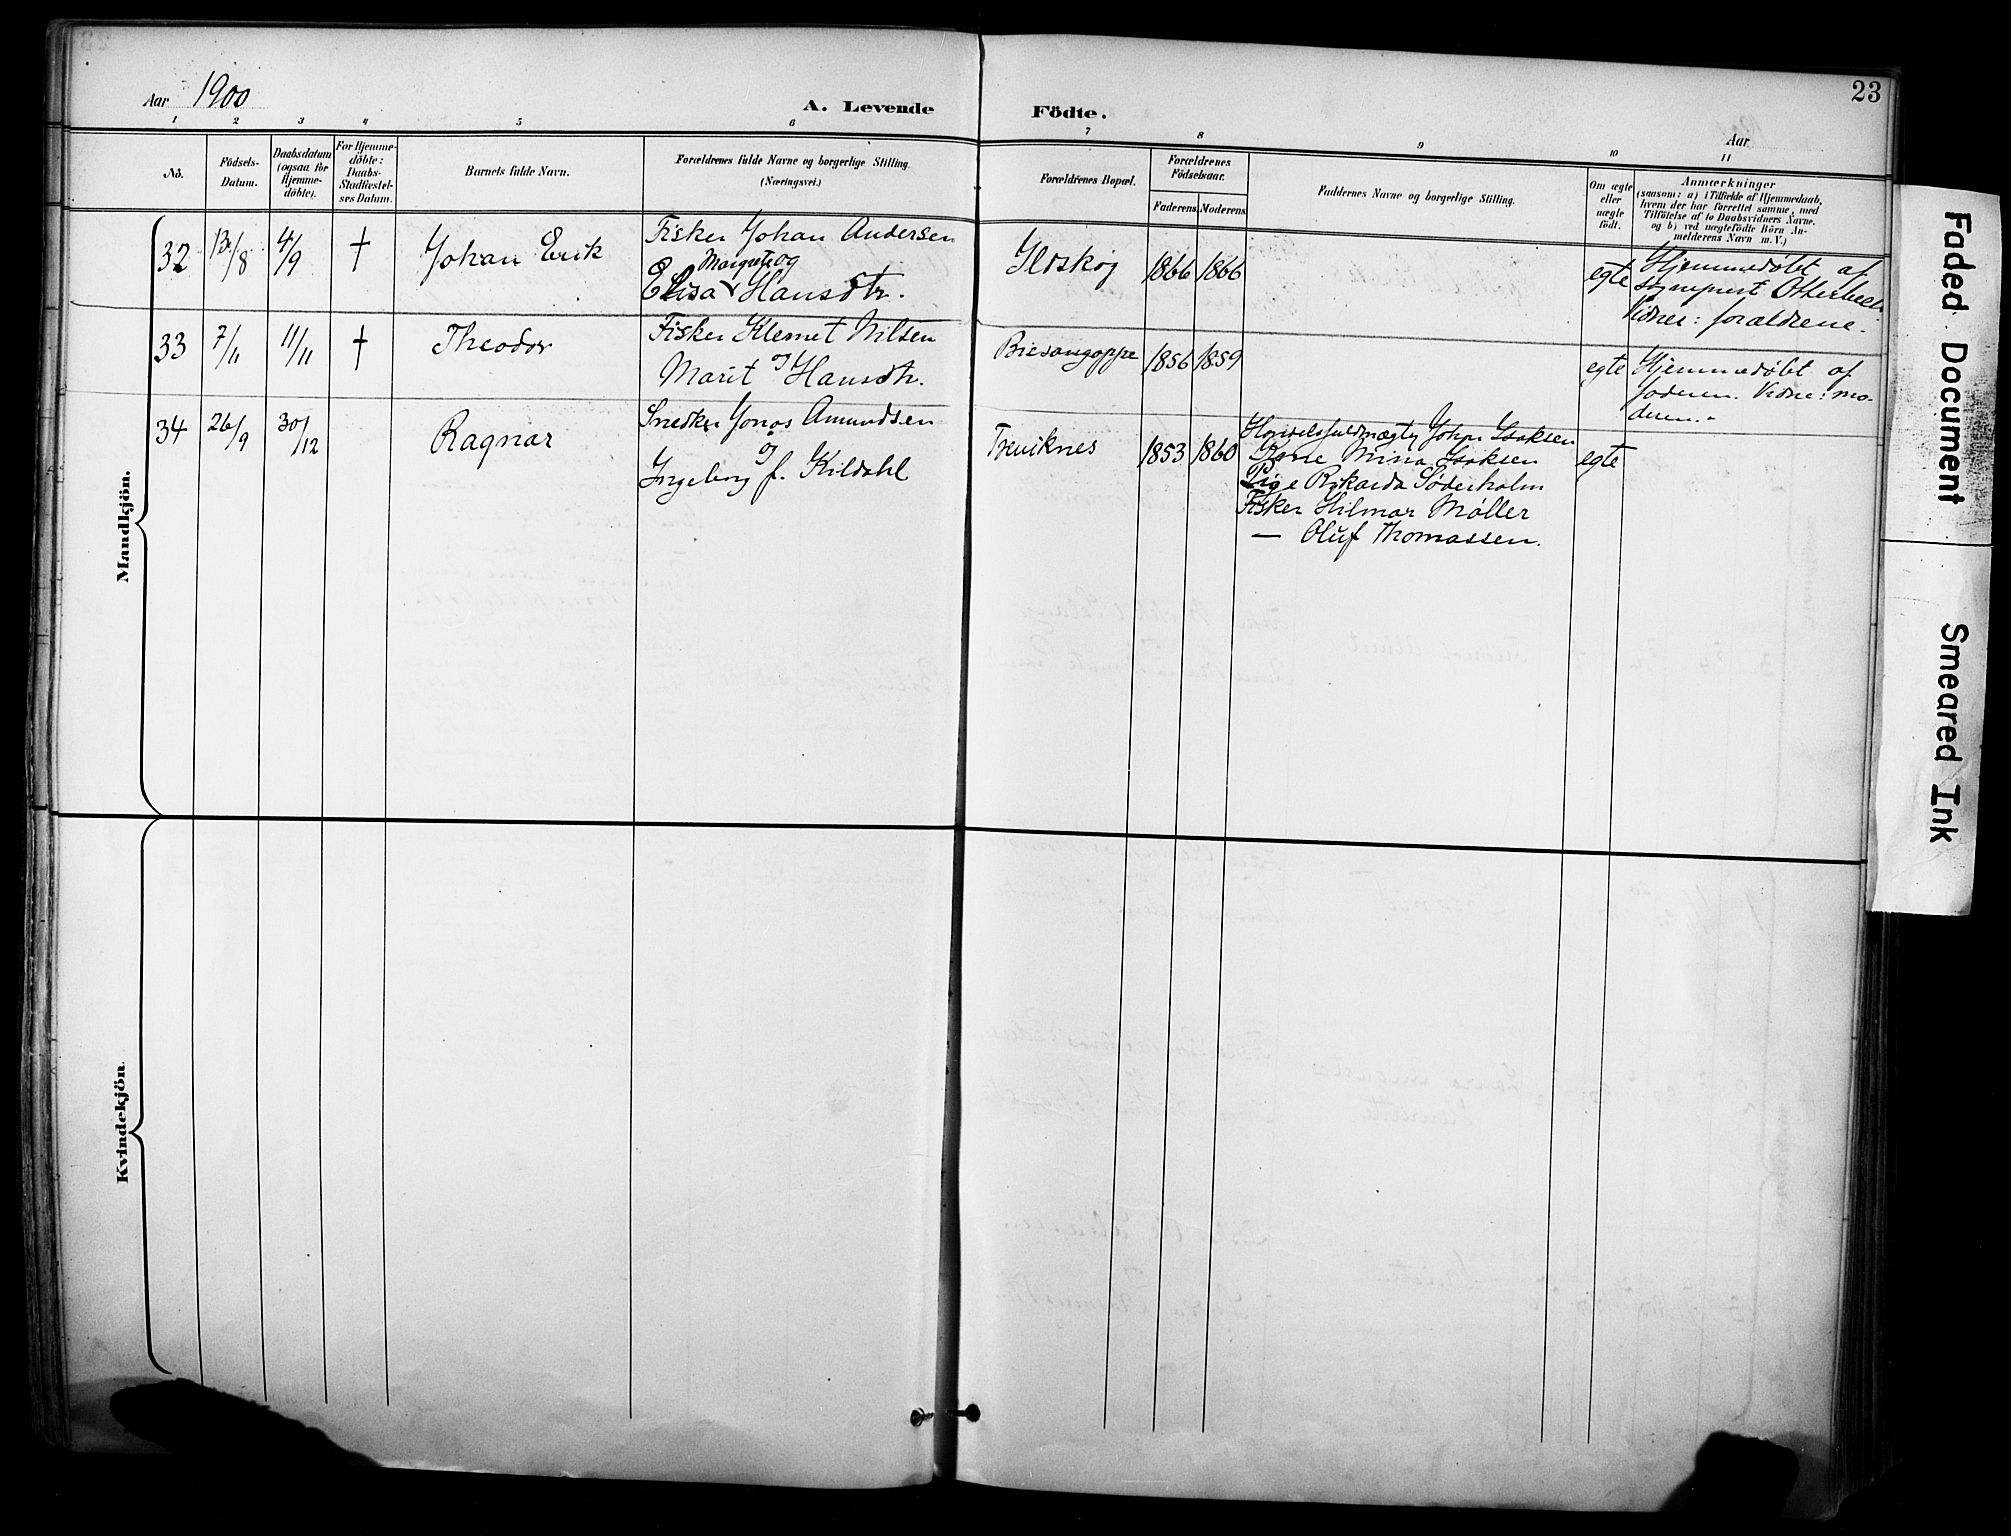 23
Aar 1900
A. Levende Födte.
Aar
1 2 3 4 5 6 7 8 9 10 11
No.
Födsels-Datum.
Daabsdatum (ogsaa for Hjemme-döbte).
For Hjemme-döbte: Daabs-Stadfæstel-ses Datum.
Barnets fulde Navn.
Forældrenes fulde Navne og borgerlige Stilling. (Næringsvei.)
Forældrenes Bopæl.
Forældrenes Födselsaar.
Faderens Moderens
Faddernes Navne og borgerlige Stilling.
Om ægte eller uægte födt.
Anmærkninger
(saasom: a) i Tilfælde af Hjemmedaab,
hvem der har forrettet samme, med
Tilföielse af to Daabsvidners Navne.
og b) ved uægtefödte Börn An-
melderens Navn m. V.)
Mandkjön.
32 /8 4/9 † Johan Erik
Fisker Johan Andersen
Margrethe og
Elisa Hansdtr.
Ildskog 1866 1866
egte
Hjemmedøbt af
sogneprest Otterbech
Vidner: forældrene.
33 7/11 11/11 † Theodor
Fisker Klemet Nilsen
og
Marit Hansdtr.
Birsangoppe 1856 1859
egte
Hjemmedøbt af
faderen. Vidne: mo-
deren.
34 26/9 30/12 Ragnar
Snedker Jonas Amundsen
og
Ingeborg f. Kildahl
Treviknes 1853 1860
Handelsfuldmægtig Johan Isaksen
Kone Mina Isaksen
Pige Rikarda Söderholm
Fisker Hilmar Møller
— Oluf Thomassen.
egte
Kvindekjön.
Faded Document
Smeared Ink